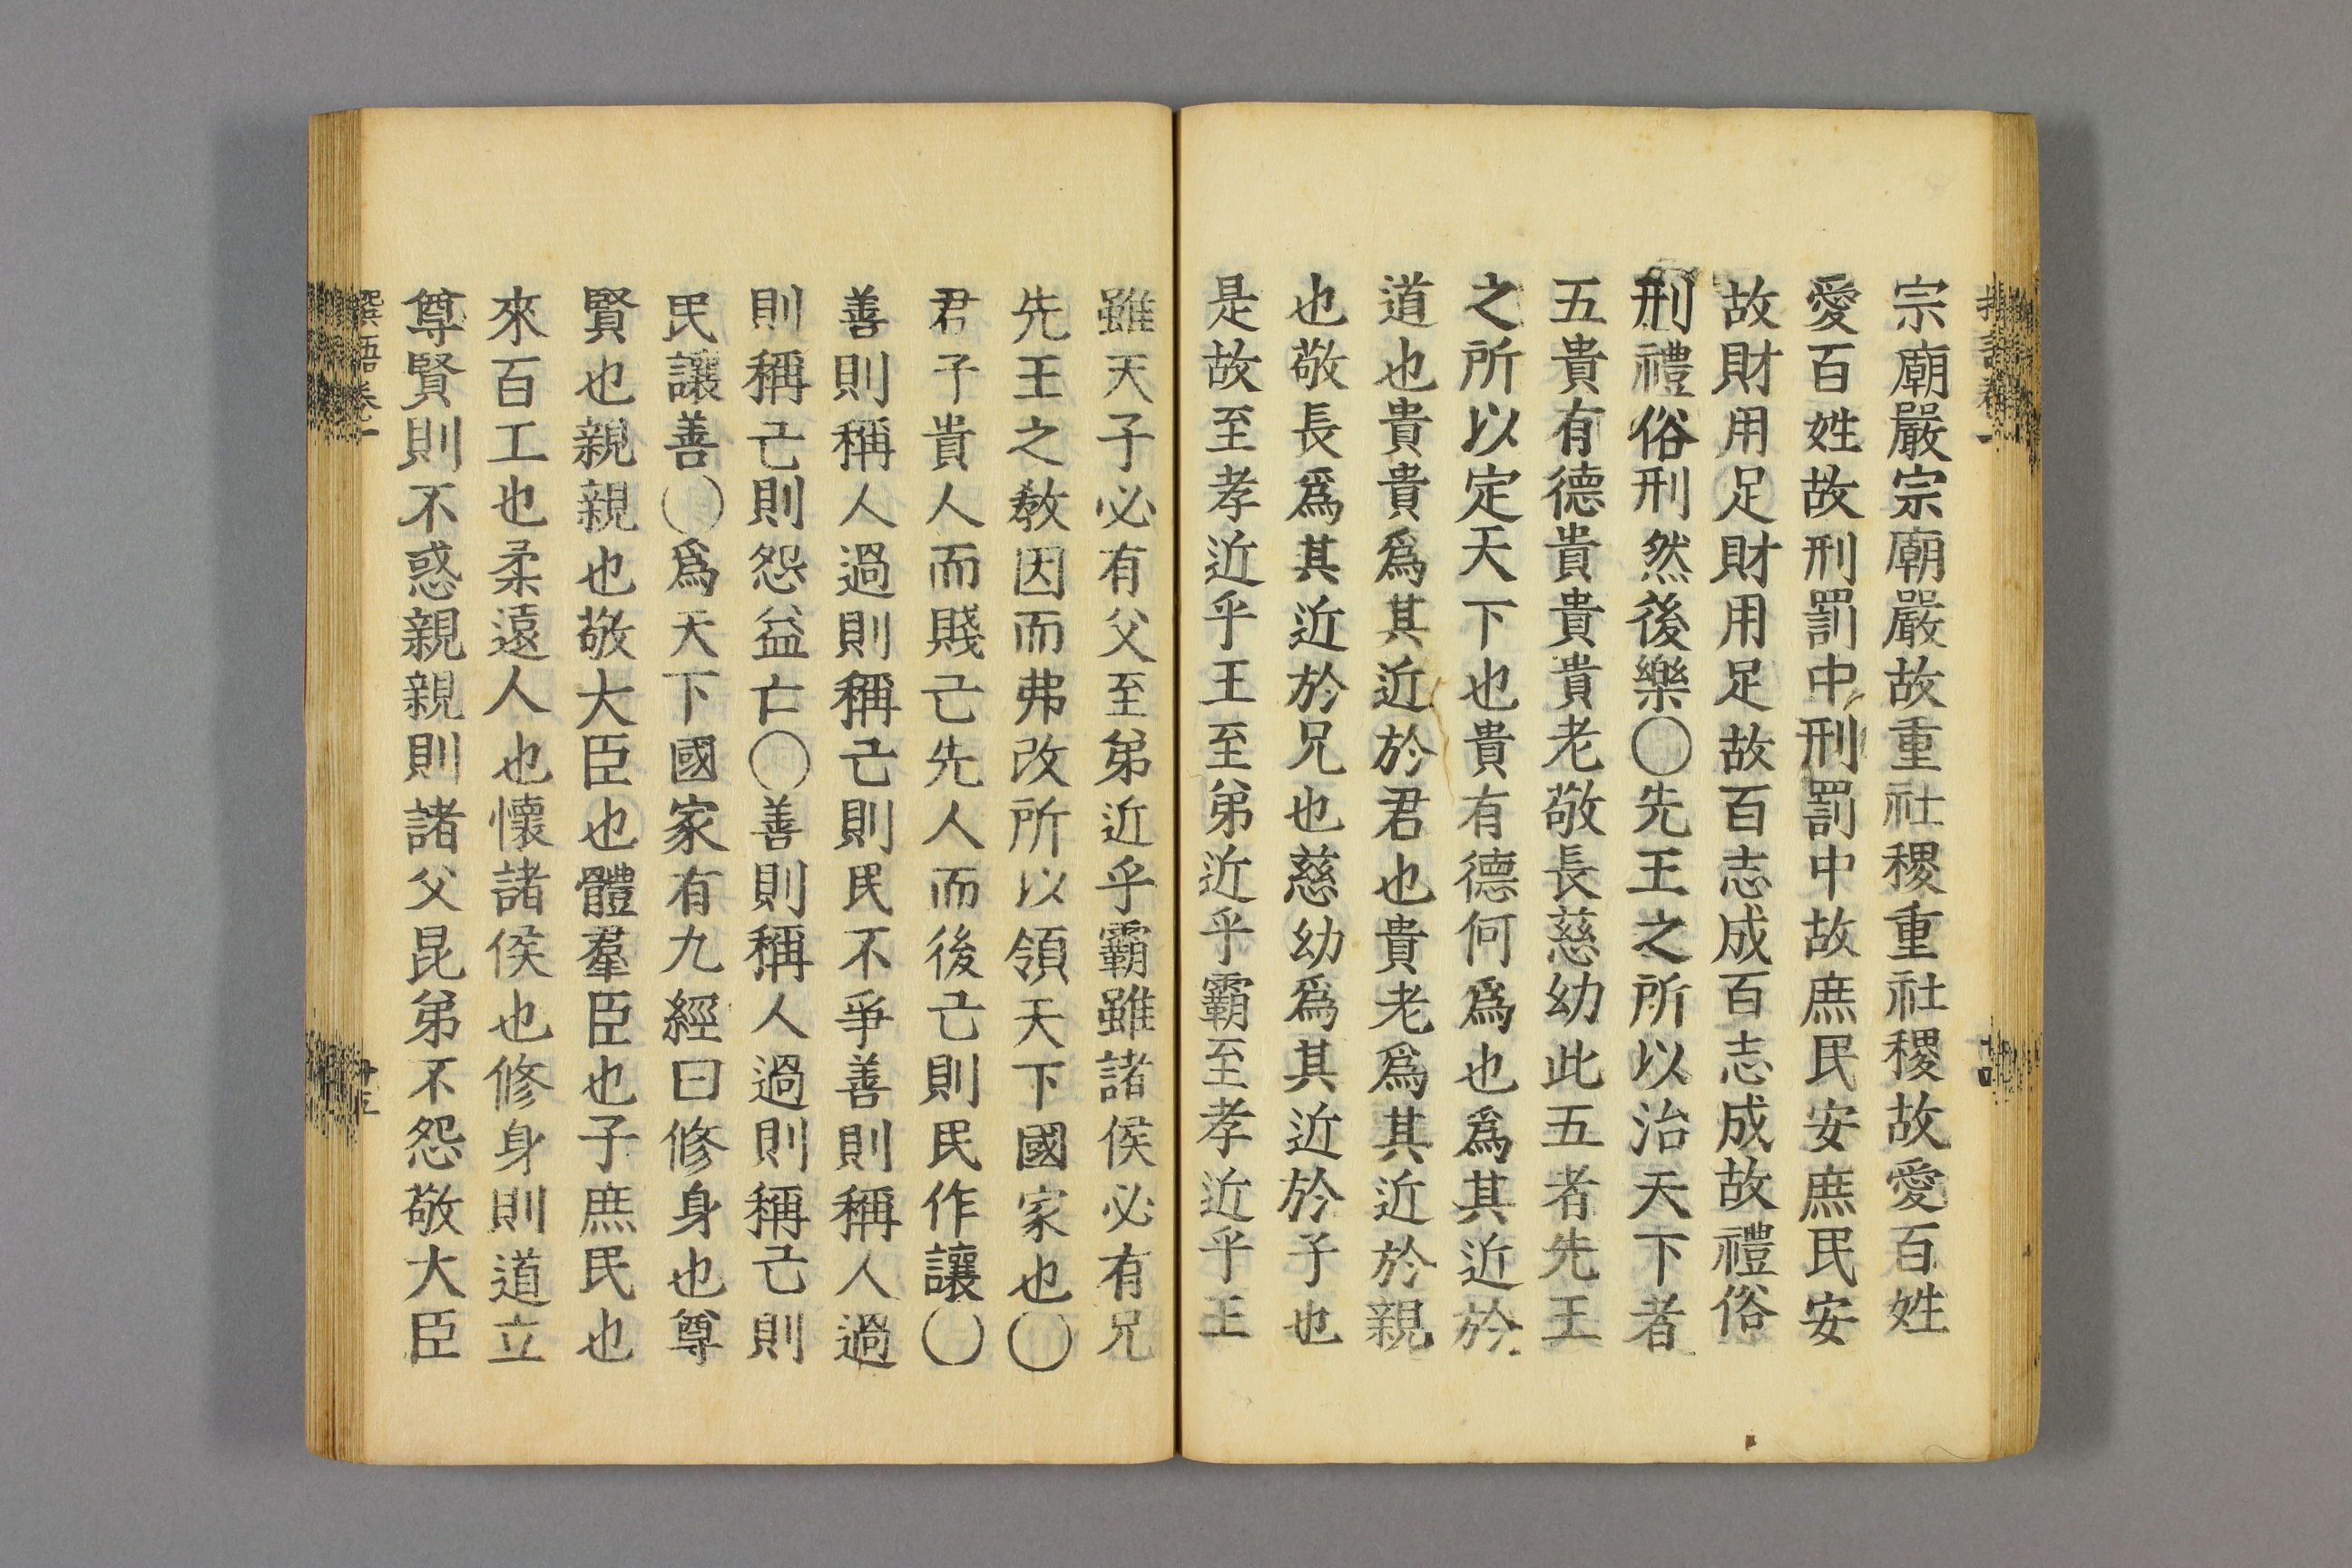 宗廟嚴宗廟嚴故重社稷重社稷故愛百姓
愛百姓故刑罰中刑罰中故庶民安庶民安
故財用足財用足故百志成百志成故禮俗
刑禮俗刑然後樂〇先王之所以治天下者
五貴有德貴貴貴老敬長慈幼此五者先王
之所以定天下也貴有德何爲也爲其近於
道也貴貴爲其近於君也貴老爲其近於親
也敬長爲其近於兄也慈幼爲其近於子也
是故至孝近乎王至弟近乎霸至孝近乎王
十四
雖天子必有父至弟近乎霸雖諸侯必有兄
先王之敎因而弗改所以領天下國家也〇
君子貴人而賤己先人而後己則民作讓〇
善則稱人過則稱己則民不爭善則稱人過
則稱己則怨益亡〇善則稱人過則稱己則
民讓善〇爲天下國家有九經曰修身也尊
賢也親親也敬大臣也體羣臣也子庶民也
來百工也柔遠人也懷諸侯也修身則道立
尊賢則不惑親親則諸父昆弟不怨敬大臣
語卷一